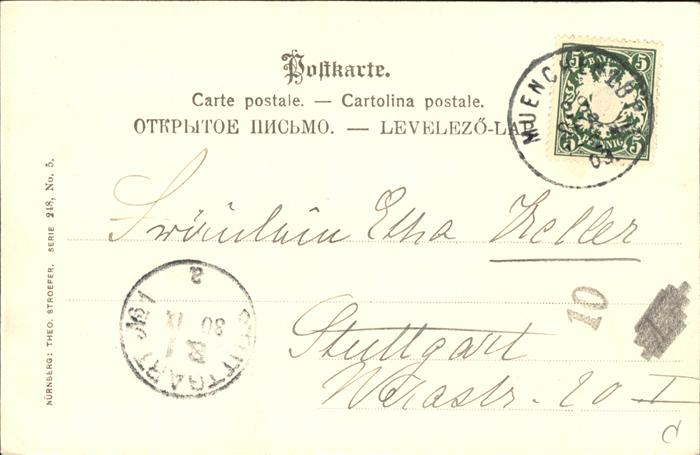 Postkarte.
Carte postale. — Cartolina postale.
ОТКРЫТОЕ ПИСЬМО. — LEVELEZŐ-LAP
5 5
5 5
MUENCHEN
03.
Fräulein Etha Keller
Stuttgart
Werastr. 20 I
10
STUTTGART
2
30 IX
NÜRNBERG: THEO. STROEFER. SERIE 248, No. 5.